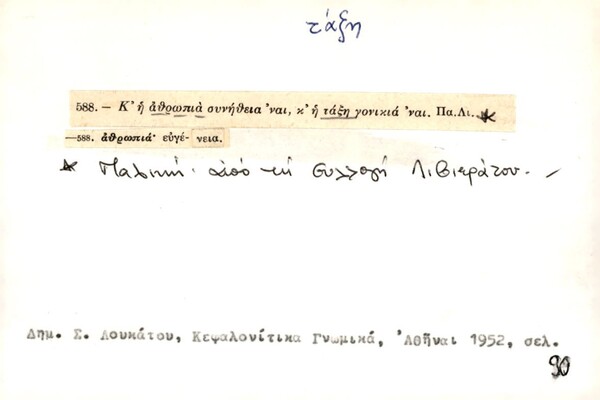 τάξη
588. — Κ' ἡ ἀθρωπιὰ συνήθεια 'ναι, κ' ἡ τάξη γονικιά 'ναι. Πα.Λι.*
—588. ἀθρωπιά· εὐγένεια.
* Παλική· ἀπό τή συλλογή Λιβιεράτου. –
Δημ. Σ. Λουκάτου, Κεφαλονίτικα Γνωμικά, Ἀθῆναι 1952, σελ.
90